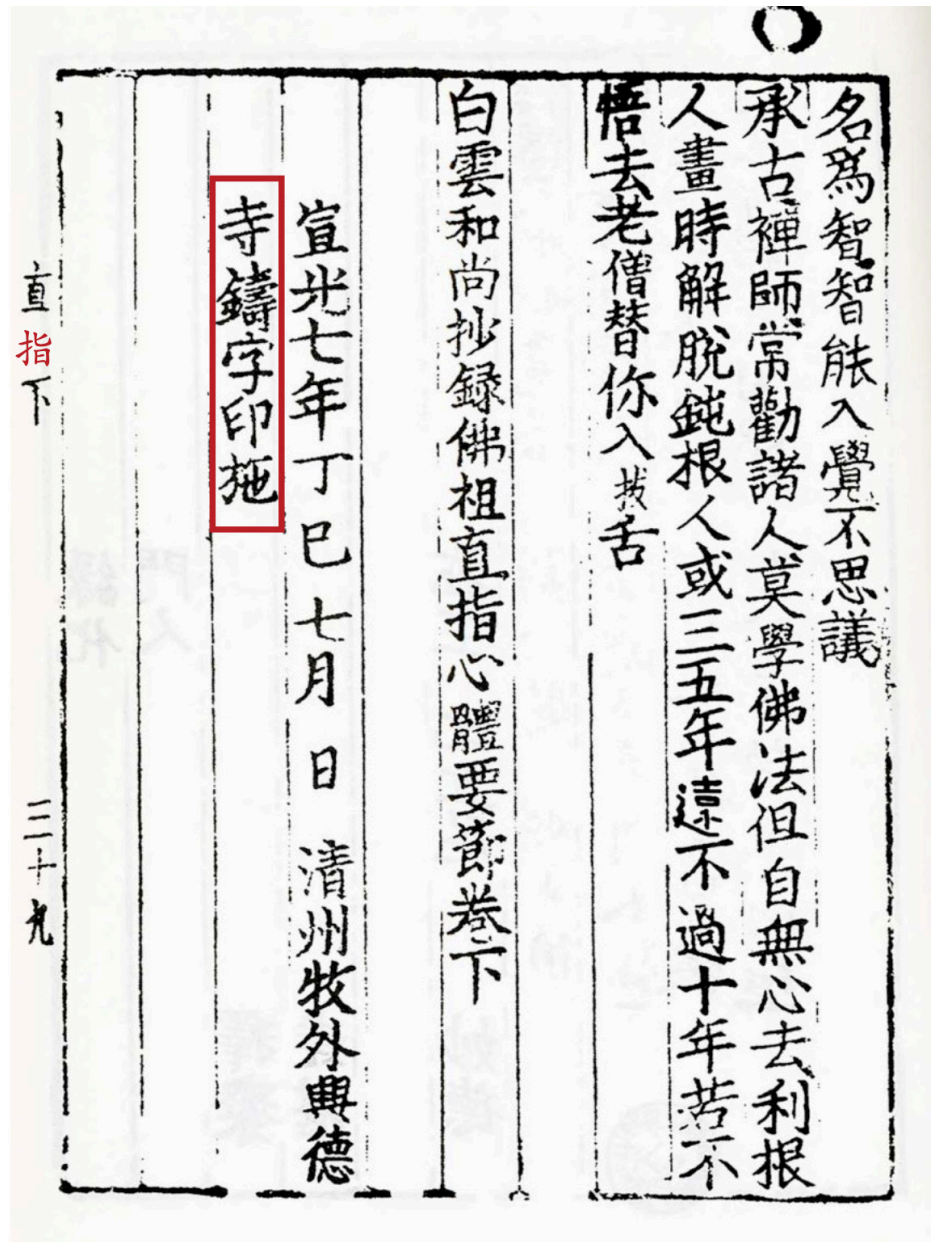 名爲智智能入覺不思議
承古禪師常勸諸人莫學佛法但自無心去利根
人畫時解脫鈍根人或三五年遠不過十年苦不
悟去老僧替你入拔舌
白雲和尚抄録佛祖直指心體要節卷下
宣光七年丁巳七月 日 清州牧外興德
寺鑄字印施
直指下 三十九